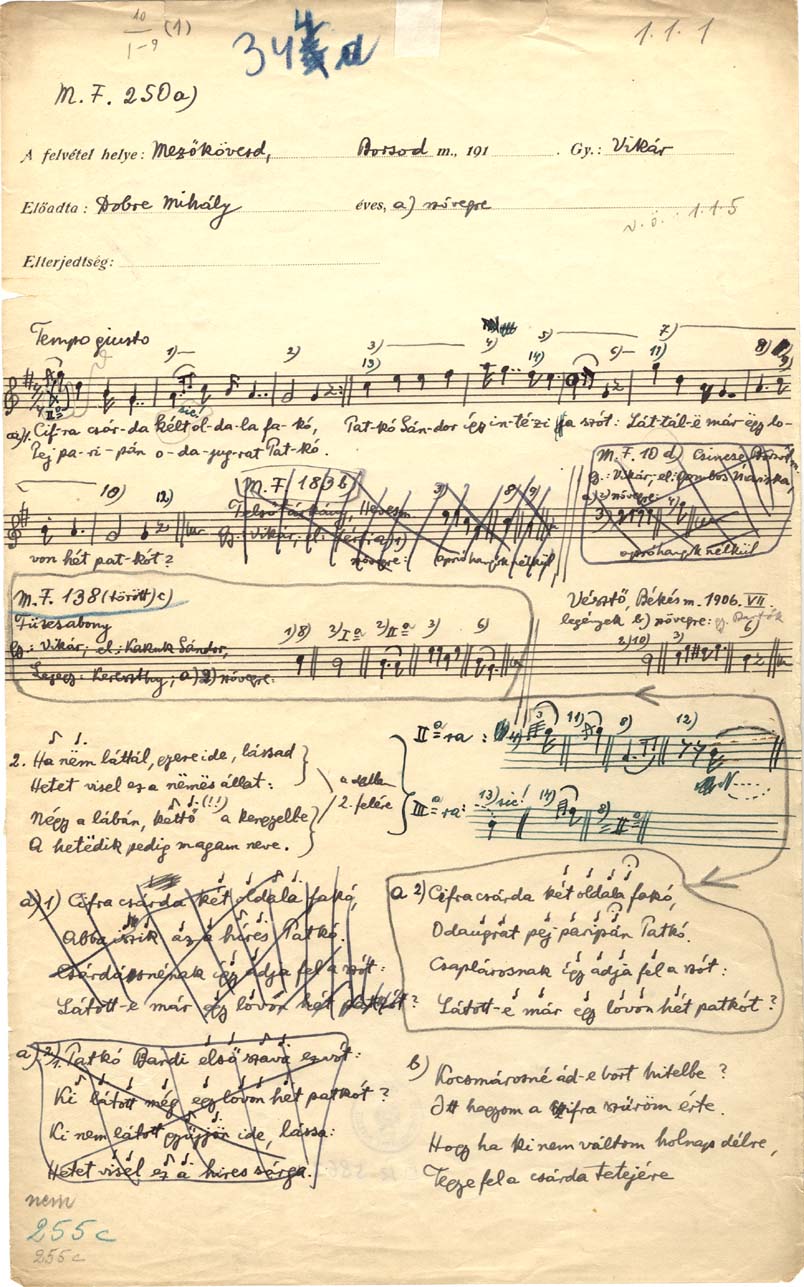 10
1-9 (1)
344 a
1.1.1
M. F. 250a)
A felvétel helye: Mezőkövesd, Borsod m., 191 . Gy.: Vikár
Előadta: Dobre Mihály éves, a) szövegre
1.1.5
Elterjedtség:
Tempo giusto
1) 2) 3) 13) 4) 14) 5) 6) 7) 11) 8) 9)
sic!
a) 1. Cif-ra csár-da két ol-da-la fa-kó, Pat-kó Sán-dor így in-té-zi a szót: Lát-tál-ë már ëgy lo-
Pej pa-ri-pán o-da-jug-rat Pat-kó.
10) 12)
von hét pat-kót?
M. F. 183b)
Felsőtárkány, Heves m.
Gy.: Vikár, el.: férfi a) 1)
szövegre: apróhangok nélkül
3) 8) 9)
M. F. 10 d) Csincse, Borsod m.
Gy.: Vikár, el.: Gombos Mariska,
a) 2) szövegre:
3) 4)
apróhangok nélkül
M. F. 138 (törött) c)
Füzesabony
Gy.: Vikár, el.: Kakuk Sándor,
a) 2) szövegre:
1) 8) 2) Iª 2) IIª 3) 6)
Vésztő, Békés m. 1906. VII.
legények b) szövegre: gy. Bartók
2) 10) 3) 6)
IIª-ra: 4) 3 11) 8) 12)
IIIª-ra: 13) sic! 14) 8) = IIª
2. Ha nëm láttál, gyere ide, lássad
Hetet visel ez a nëmës állat:
Négy a lábán, kettő (!!) a kengyelbe
A hetëdik pedig magam neve.
a dallam
2. felére
a) 1) Cifra csárda két oldala fakó,
Abba iszik az a híres Patkó.
Csárdásnénak így adja fel a szót:
Látott-e már egy lovon hét patkót?
a 2) Cifra csárda két oldala fakó,
Odaugrat pej paripán Patkó.
Csaplárosnak így adja fel a szót:
Látott-e már egy lovon hét patkót?
a) 2) 1. Patkó Bandi első szava ez vót:
Ki látott még egy lovon hét patkót?
Ki nem látott gyűjjön ide, lássa:
Hetet visel ez a híres sárga.
b) Kocsmárosné ád-e bort hitelbe?
Itt hagyom a cifra szűröm érte.
Hogy ha ki nem váltom holnap délre,
Tegye fel a csárda tetejére
nem
255c
255c